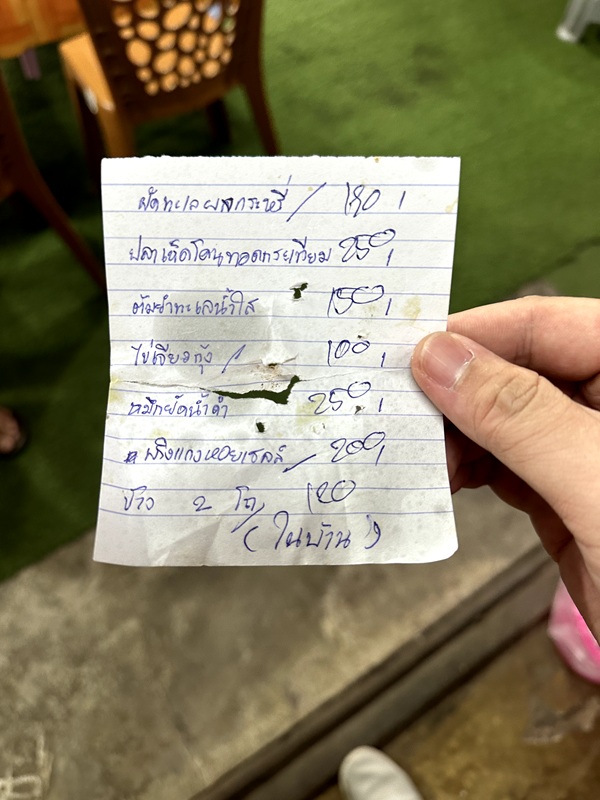 ผัดทะเลผงกะหรี่ / 180 ,
ปลาเห็ดโคนทอดกระเทียม 250,
ต้มยำทะเลน้ำใส 150,
ไข่เจียวกุ้ง / 100,
หมึกผัดน้ำดำ 250,
พริงแกงหอยเชลล์ / 200,
ข้าว 2 โถ / 120
(ในบ้าน)